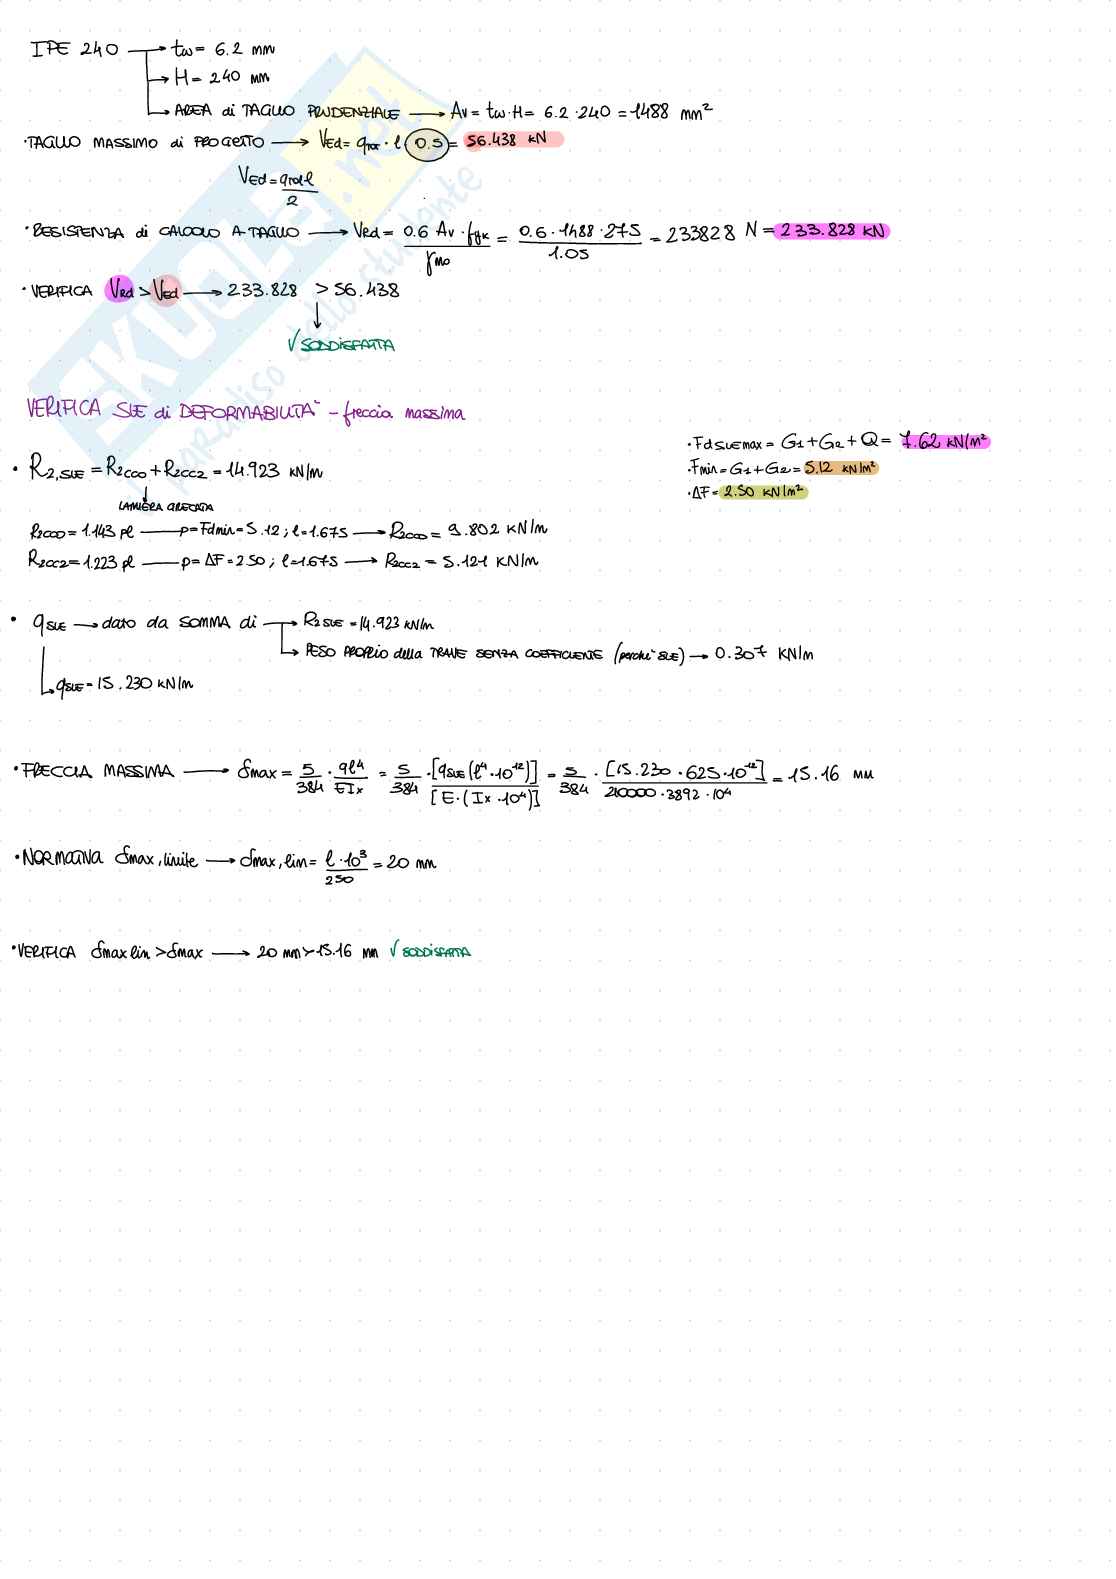 IPE 240 → tw = 6.2 mm
→ H = 240 mm
→ AREA di TAGLIO PRUDENZIALE → Av = tw · H = 6.2 · 240 = 1488 mm²
· TAGLIO MASSIMO di PROGETTO → VEd = qtot · l · 0.5 = 56.438 kN
VEd = qtot l / 2
· RESISTENZA di CALCOLO A TAGLIO → VRd = 0.6 Av · fyk / γM0 = 0.6 · 1488 · 275 / 1.05 = 233828 N = 233.828 kN
· VERIFICA VRd > VEd → 233.828 > 56.438
√ SODDISFATTA
VERIFICA SLE di DEFORMABILITA' - freccia massima
· Fd SLE max = G1 + G2 + Q = 7.62 kN/m²
· R2,SLE = R2CC0 + R2CC2 = 14.923 kN/m
· Fmin = G1 + G2 = 5.12 kN/m²
· ΔF = 2.50 kN/m²
LAMIERA GRECATA
R2CC0 = 1.143 pl → p = Fdmin = 5.12 ; l = 1.675 → R2CC0 = 9.802 KN/m
R2CC2 = 1.223 pl → p = ΔF = 2.50 ; l = 1.675 → R2CC2 = 5.121 KN/m
· qSLE → dato da SOMMA di → R2 SLE = 14.923 kN/m
→ PESO PROPRIO della TRAVE SENZA COEFFICIENTE (perche' SLE) → 0.307 KN/m
→ qSLE = 15.230 kN/m
· FRECCIA MASSIMA → δmax = 5/384 · ql⁴/EIx = 5/384 · [qSLE (l⁴ · 10¹²)] / [E · (Ix · 10⁴)] = 5/384 · [15.230 · 625 · 10¹²] / 210000 · 3892 · 10⁴ = 15.16 mm
· NORMATIVA δmax, limite → δmax, lim = l · 10³ / 250 = 20 mm
· VERIFICA δmax lim > δmax → 20 mm > 15.16 mm √ SODDISFATTA
SKUOLA.net
il paradiso dello studente